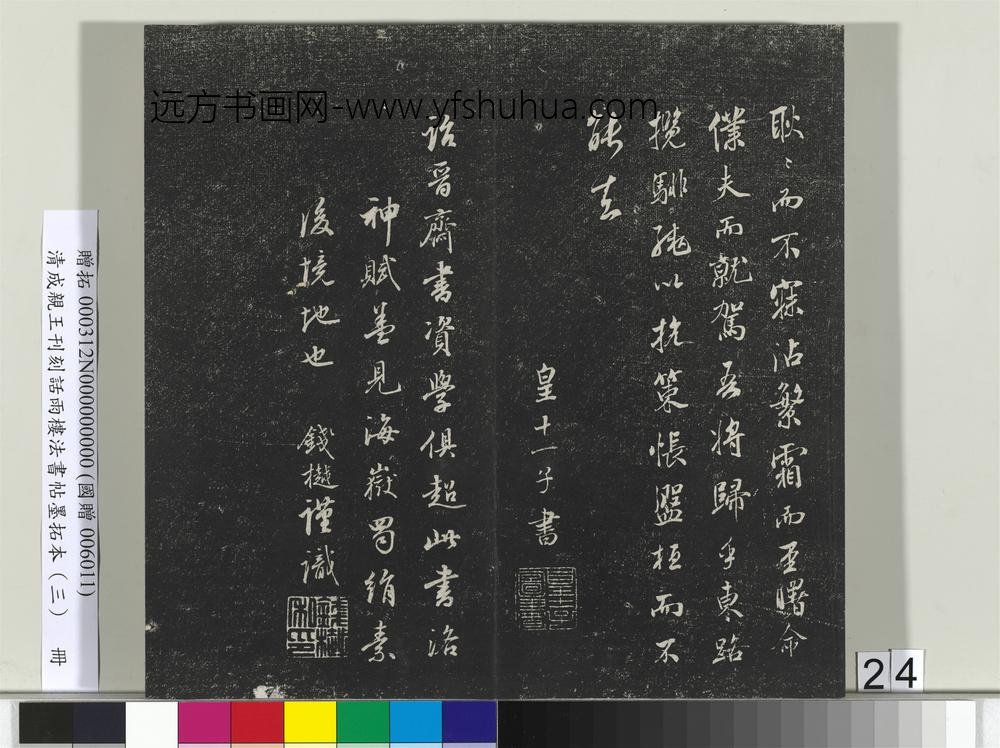 远方书画网-www.yfshuhua.com
耿〻而不寐沾繁霜而至曙命
僕夫而就駕吾將歸乎東路
攬騑轡以抗策悵盤桓而不
能去
皇十一子書
詒晉齋書資學俱超此書洛
神賦並見海嶽蜀絹素
後境地也 錢樾謹識
贈拓 000312N000000000 (國贈 006011)
清成親王刊刻話雨樓法書帖墨拓本(三) 冊
24